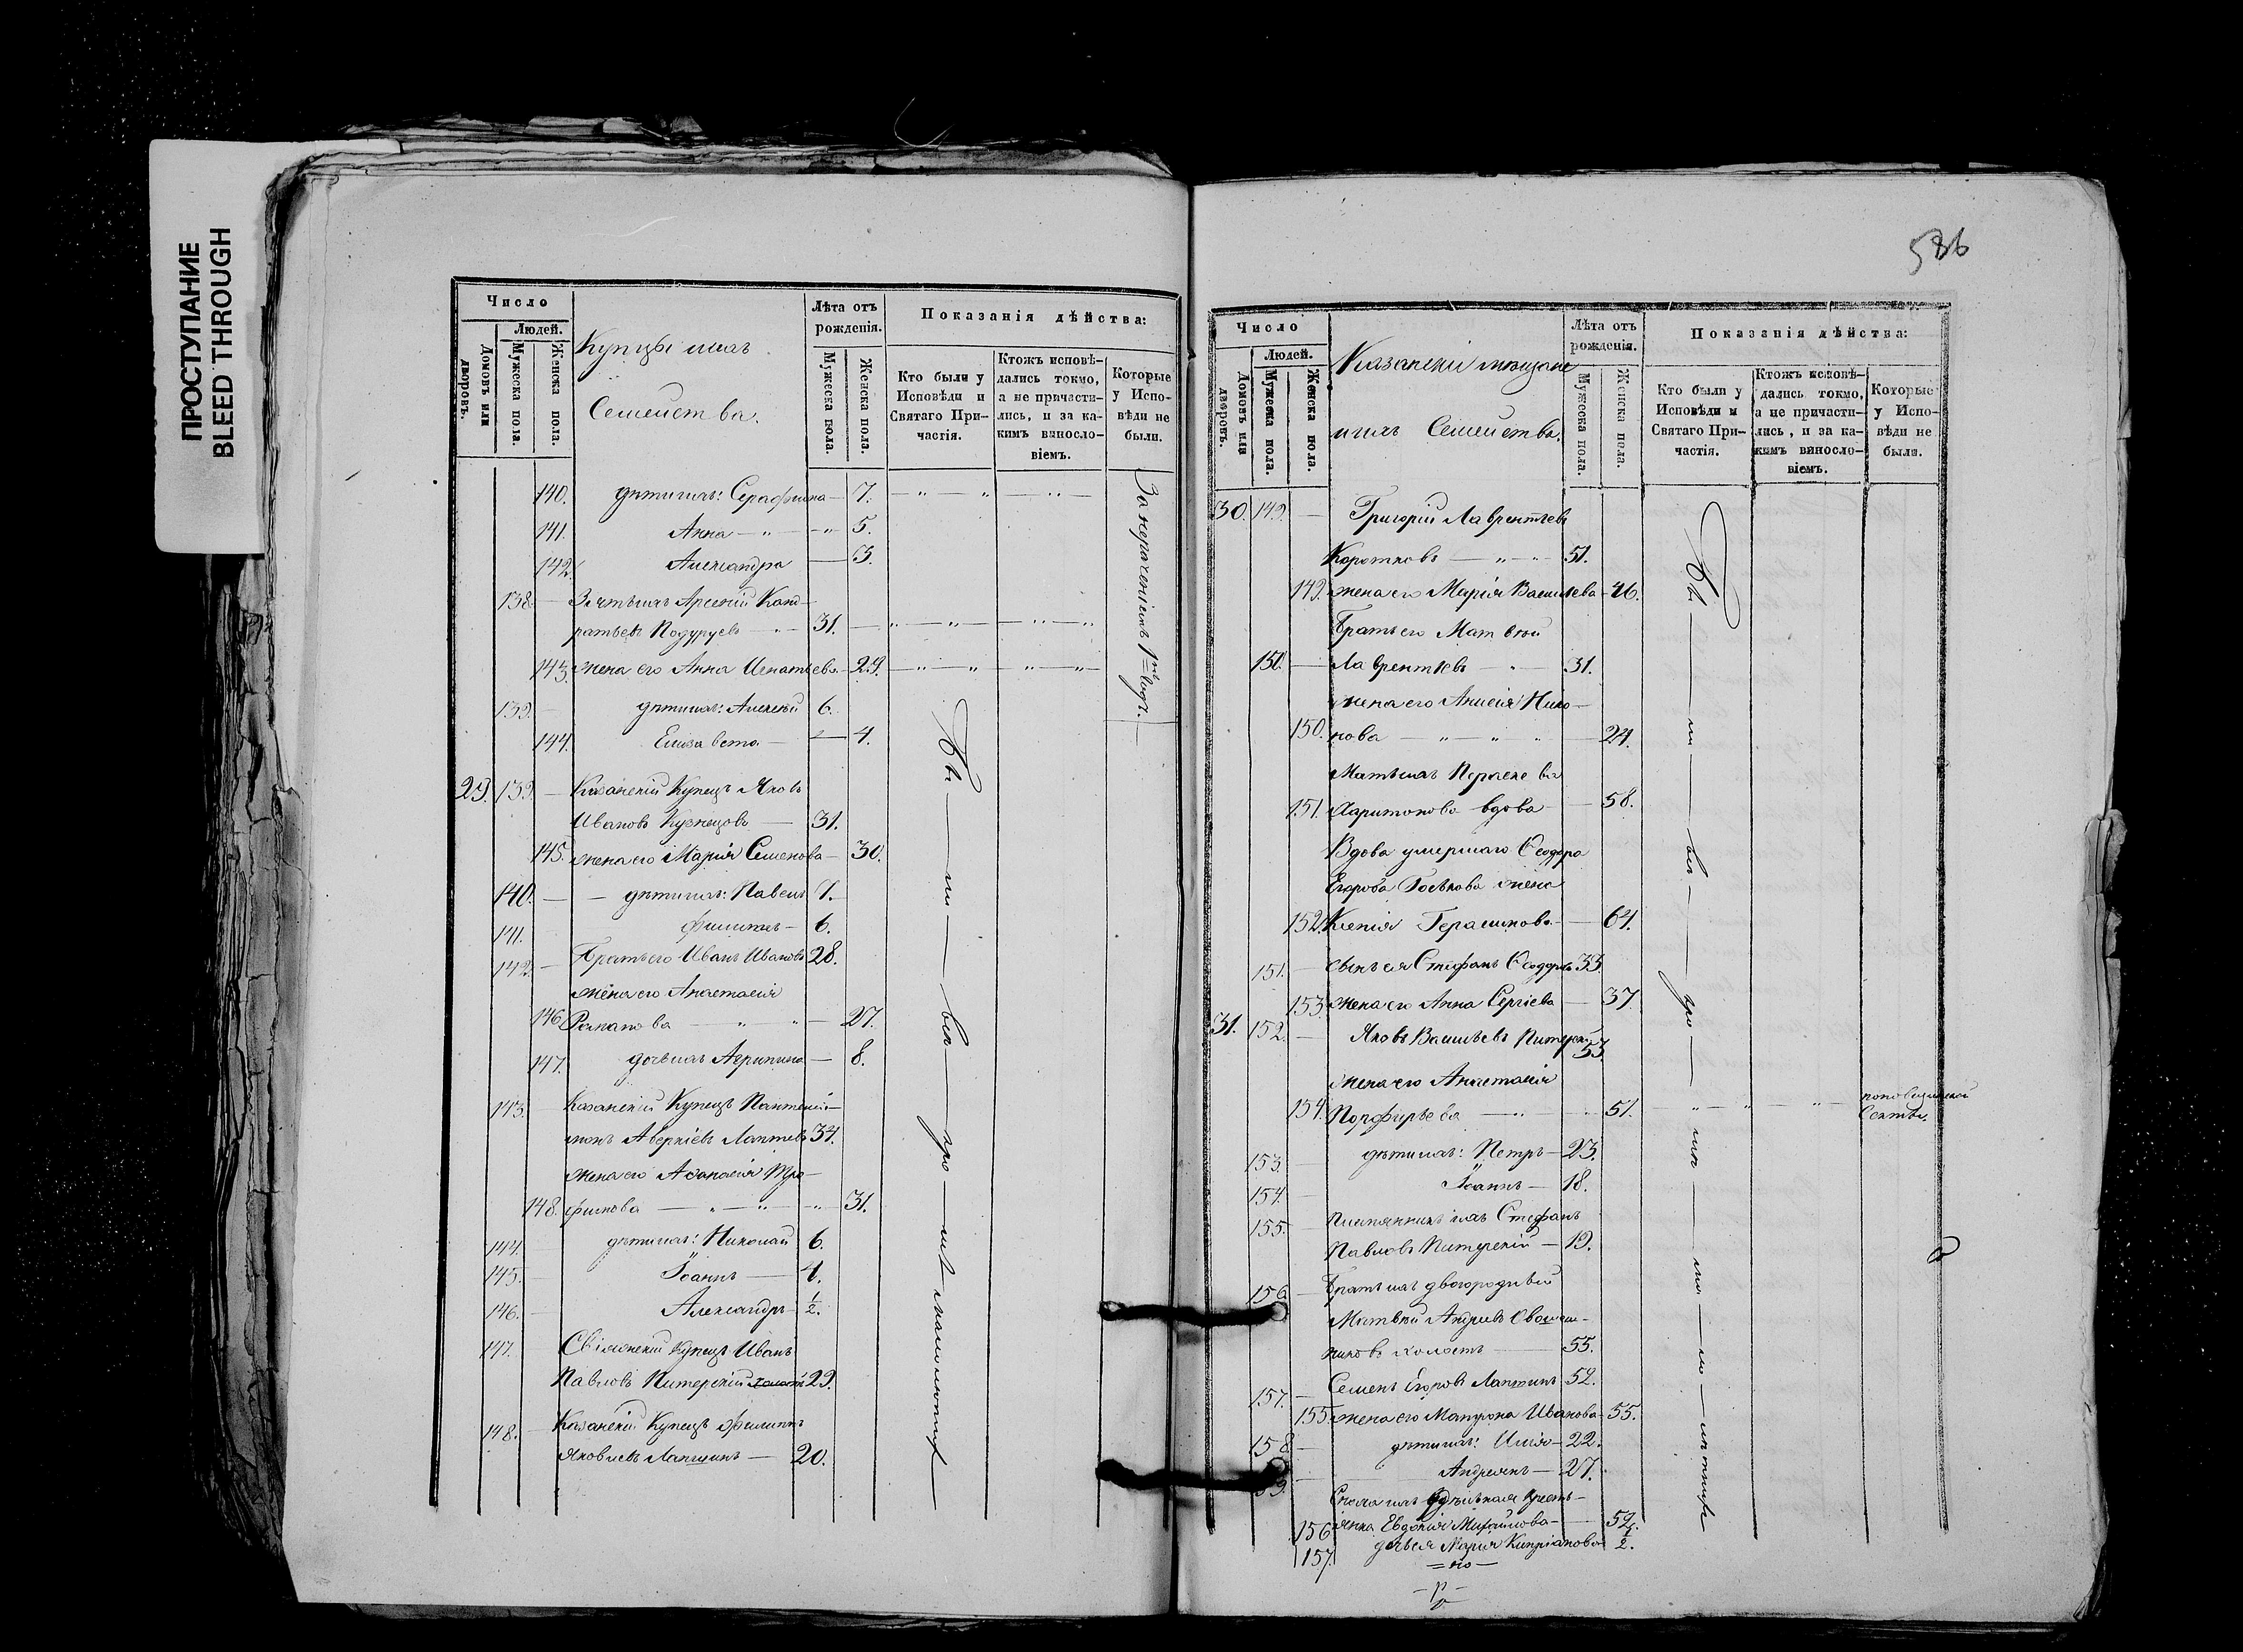 ПРОСТУПАНИЕ
BLEED THROUGH
Число
Людей.
Домовъ или дворовъ.
Мужеска пола.
Женска пола.
Купцы и ихъ
Семейства.
Лѣта отъ рожденія.
Мужеска пола.
Женска пола.
Показанія дѣйства:
Кто были у Исповѣди и Святаго При-частія.
Ктожъ исповѣ-дались токмо, а не причасти-лись, и за ка-кимъ винослo-віемъ.
Которые у Испо-вѣди не были.
140. дѣти ихъ: Серафима — 7.
141. Анна — 5.
142. Александра — 3.
138. Зять ихъ Арсеній Конд-
ратьевъ Подуруевъ — 31.
143. жена его Анна Игнатьева — 29.
139. дѣти ихъ: Алексѣй 6.
144. Елизавета — 4.
За нерачениемъ
29. 139. Казанскій Купецъ Яковъ
Ивановъ Кузнецовъ — 31.
145. жена его Марія Семенова — 30.
140. дѣти ихъ: Павелъ 7.
141. Филиппъ — 6.
142. Братъ его Иванъ Ивановъ 28.
жена его Анастасія
146. Романова — 27.
147. дочь ихъ Агрипина — 8.
143. Казанскій Купецъ Пантелей-
монъ Аверкіевъ Лаптевъ 34.
жена его Афанасія Тро-
148. фимова — 31.
144. дѣти ихъ: Николай 6.
145. Іоаннъ — 4.
146. Александръ 1/2.
147. Свіяжскій Купецъ Иванъ
Павловъ Питерскій холостъ 29.
148. Казанскій Купецъ Филиппъ
Яковлевъ Лапшинъ — 20.
586
Число
Людей.
Домовъ или дворовъ.
Мужеска пола.
Женска пола.
Казанскіи мѣщане
и ихъ Семейства.
Лѣта отъ рожденія.
Мужеска пола.
Женска пола.
Показанія дѣйства:
Кто были у Исповѣди и Святаго При-частія.
Ктожъ исповѣ-дались токмо, а не причасти-лись, и за ка-кимъ винослo-віемъ.
Которые у Испо-вѣди не были.
30. 149. Григорій Лаврентьевъ
Коротковъ — 51.
149. жена его Марія Васильева — 46.
Братъ его Матвѣй
150. Лаврентьевъ — 31.
жена его Анисія Нико-
150. нова — 24.
Мать ихъ Параскева
151. Харитонова вдова — 58.
Вдова умершаго Ѳеодора
Егорова жена
152. Ксенія Герасимова — 64.
151. сынъ ея Стефанъ Ѳеодоровъ 33.
153. жена его Анна Сергіева — 37.
31. 152. Яковъ Васильевъ Питерскій 53.
жена его Анастасія
154. Порфирьева — 51. поповщинской
Секты.
153. дѣти ихъ: Петръ — 23.
154. Іоаннъ — 18.
155. Племянникъ ихъ Стефанъ
Павловъ Питерскій — 19.
156. Братъ ихъ двоюродный
Матвѣй Андреевъ
никовъ холостъ — 55.
157. Семенъ Егоровъ Лапшинъ 52.
155. жена его Матрона Иванова — 55.
158. дѣти ихъ: Илія — 22.
Андреянъ — 27.
кресть-
156. янка Евдокія Михайлова — 52.
157. дочь ея Марія Кипріанова 1/2.